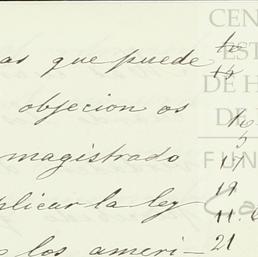 as que puede
objecion os
magistrado
plicar la ley
los ameri-
17
19
21
CEN
EST
DE H
DE
FUN